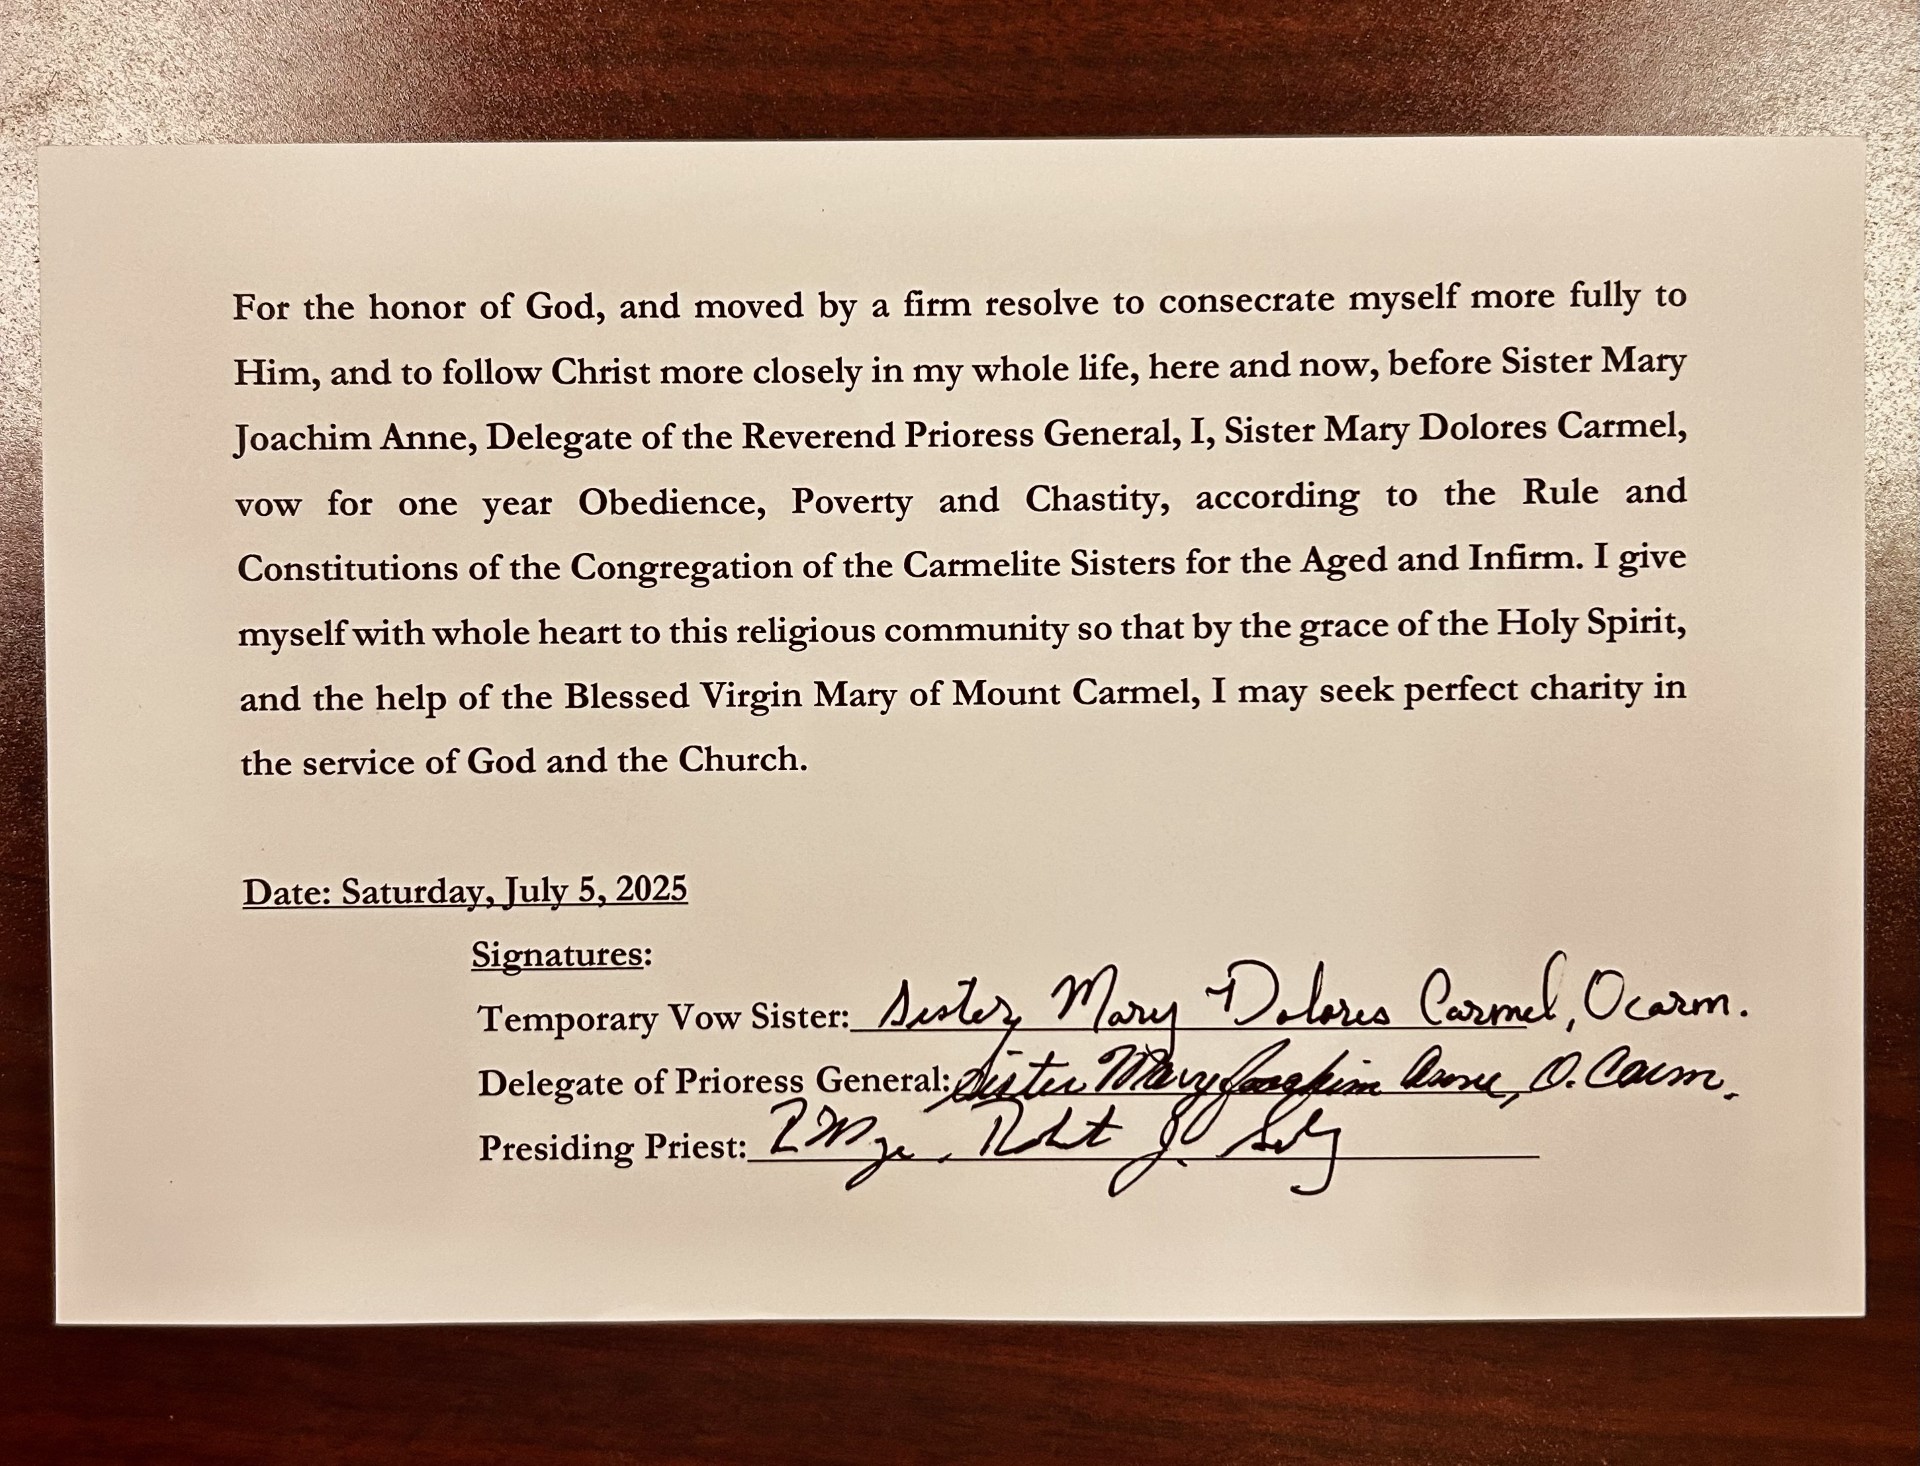 For the honor of God, and moved by a firm resolve to consecrate myself more fully to
Him, and to follow Christ more closely in my whole life, here and now, before Sister Mary
Joachim Anne, Delegate of the Reverend Prioress General, I, Sister Mary Dolores Carmel,
vow for one year Obedience, Poverty and Chastity, according to the Rule and
Constitutions of the Congregation of the Carmelite Sisters for the Aged and Infirm. I give
myself with whole heart to this religious community so that by the grace of the Holy Spirit,
and the help of the Blessed Virgin Mary of Mount Carmel, I may seek perfect charity in
the service of God and the Church.
Date: Saturday, July 5, 2025
Signatures:
Temporary Vow Sister: Sister Mary Dolores Carmel, Ocarm.
Delegate of Prioress General: Sister Mary Joachim Anne, O. Carm.
Presiding Priest: Robt J.